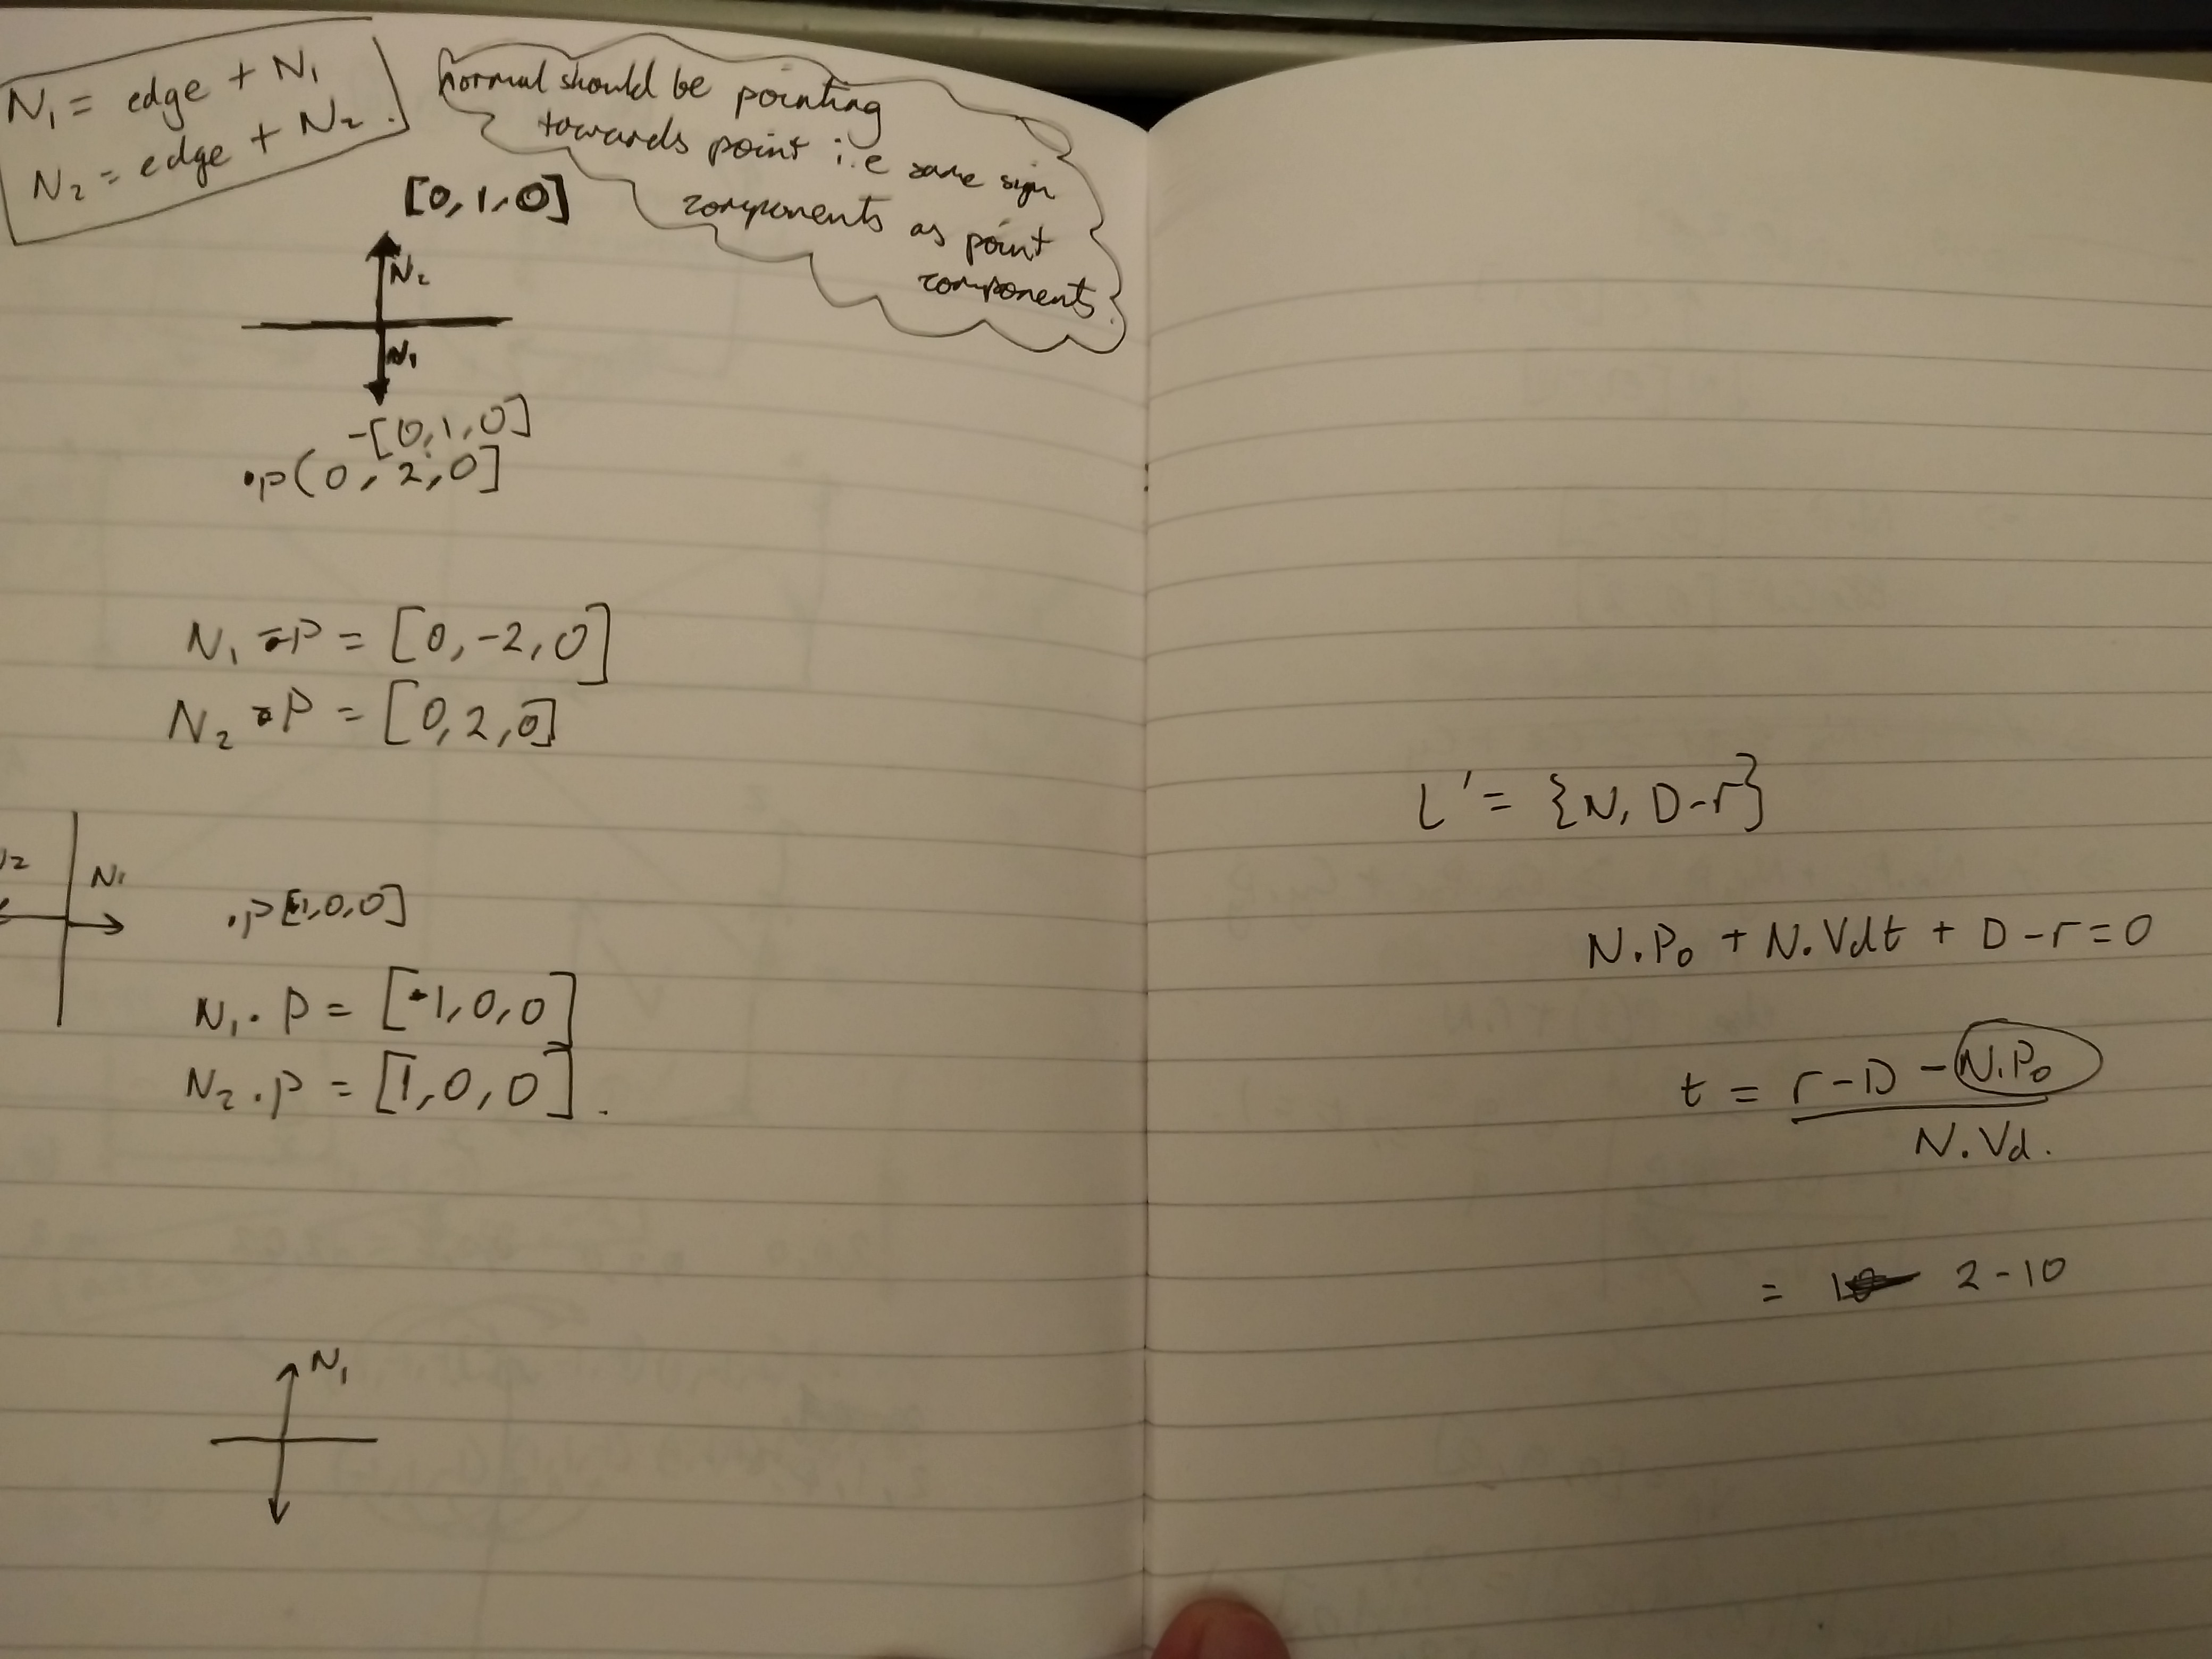 N₁ = edge + N₁
N₂ = edge + N₂.
normal should be pointing
towards point i.e same sign
components as point
components.
[0, 1, 0]
N₂
N₁
-[0, 1, 0]
.p(0, 2, 0]
N₁ = P = [0, -2, 0]
N₂ = P = [0, 2, 0]
N₁
.p[1, 0, 0]
N₁ . P = [-1, 0, 0]
N₂ . P = [1, 0, 0].
N₁
L' = {N, D-r}
N.P₀ + N.Vdt + D - r = 0
t = r - D - N.P₀
N.Vd.
= 2 - 10